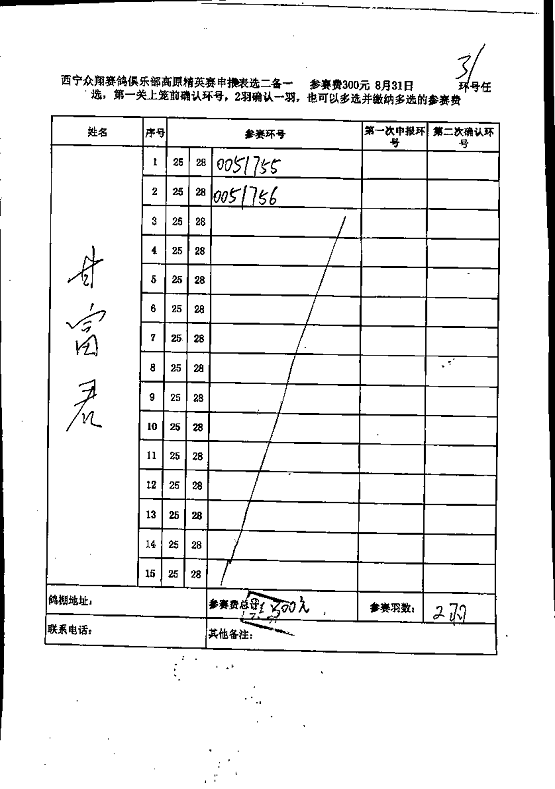 31
西宁众翔赛鸽俱乐部高原精英赛申报表选二备一 参赛费300元 8月31日 环号任
选,第一关上笼前确认环号,2羽确认一羽,也可以多选并缴纳多选的参赛费
姓名 序号 参赛环号 第一次申报环号 第二次确认环号
甘富君
1 25 28 0051755
2 25 28 0051756
3 25 28
4 25 28
5 25 28
6 25 28
7 25 28
8 25 28
9 25 28
10 25 28
11 25 28
12 25 28
13 25 28
14 25 28
15 25 28
鸽棚地址: 参赛费总 300元 参赛羽数: 2羽
联系电话: 其他备注: